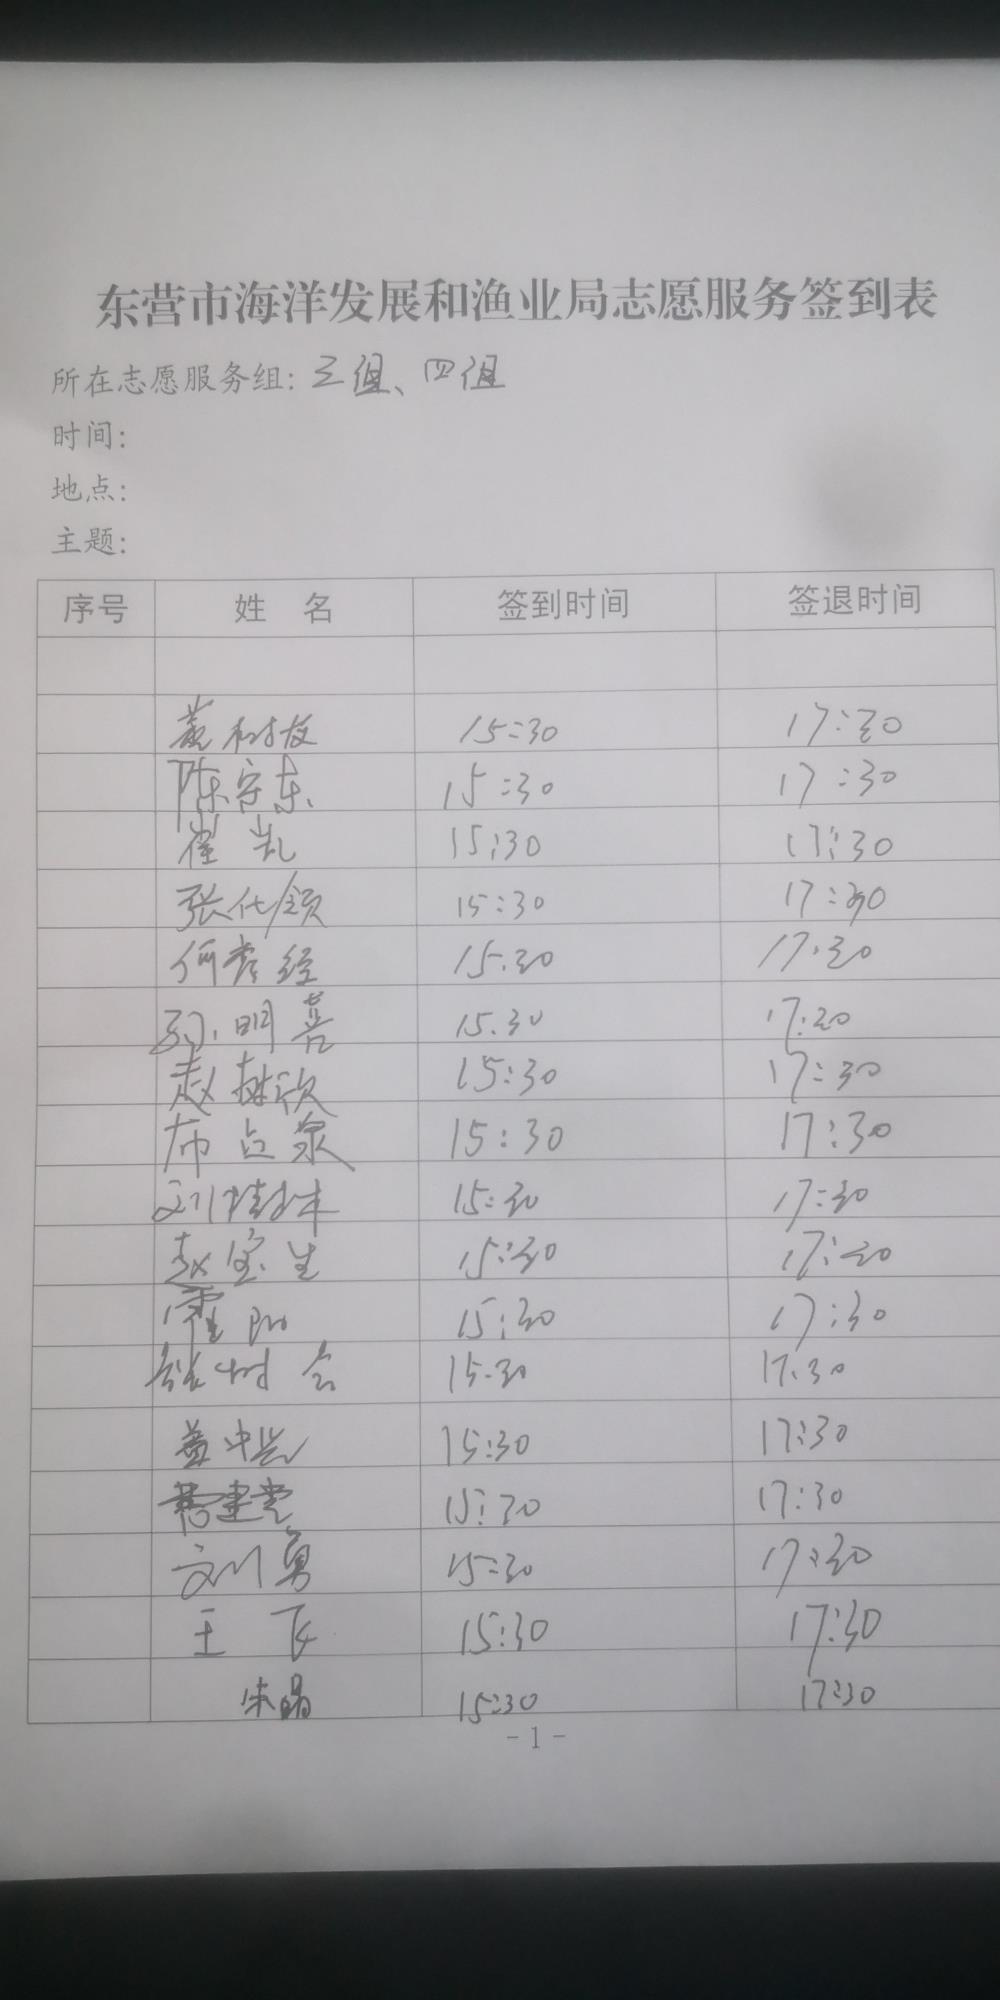 东营市海洋发展和渔业局志愿服务签到表
所在志愿服务组：三组、四组
时间：
地点：
主题：
序号 姓 名 签到时间 签退时间
树枝 15:30 17:30
陈守东 15:30 17:30
崔凯 15:30 17:30
张代领 15:30 17:30
何彦经 15.30 17.30
孙明喜 15.30 17:30
赵 欣 15:30 17:30
布占泉 15:30 17:30
刘桂林 15:30 17:30
赵宝生 15:30 17:30
霍阳 15:30 17:30
张树 15:30 17:30
盖中 15:30 17:30
建党 15:30 17:30
刘勇 15:30 17:30
王飞 15:30 17:30
朱晶 15:30 17:30
-1-